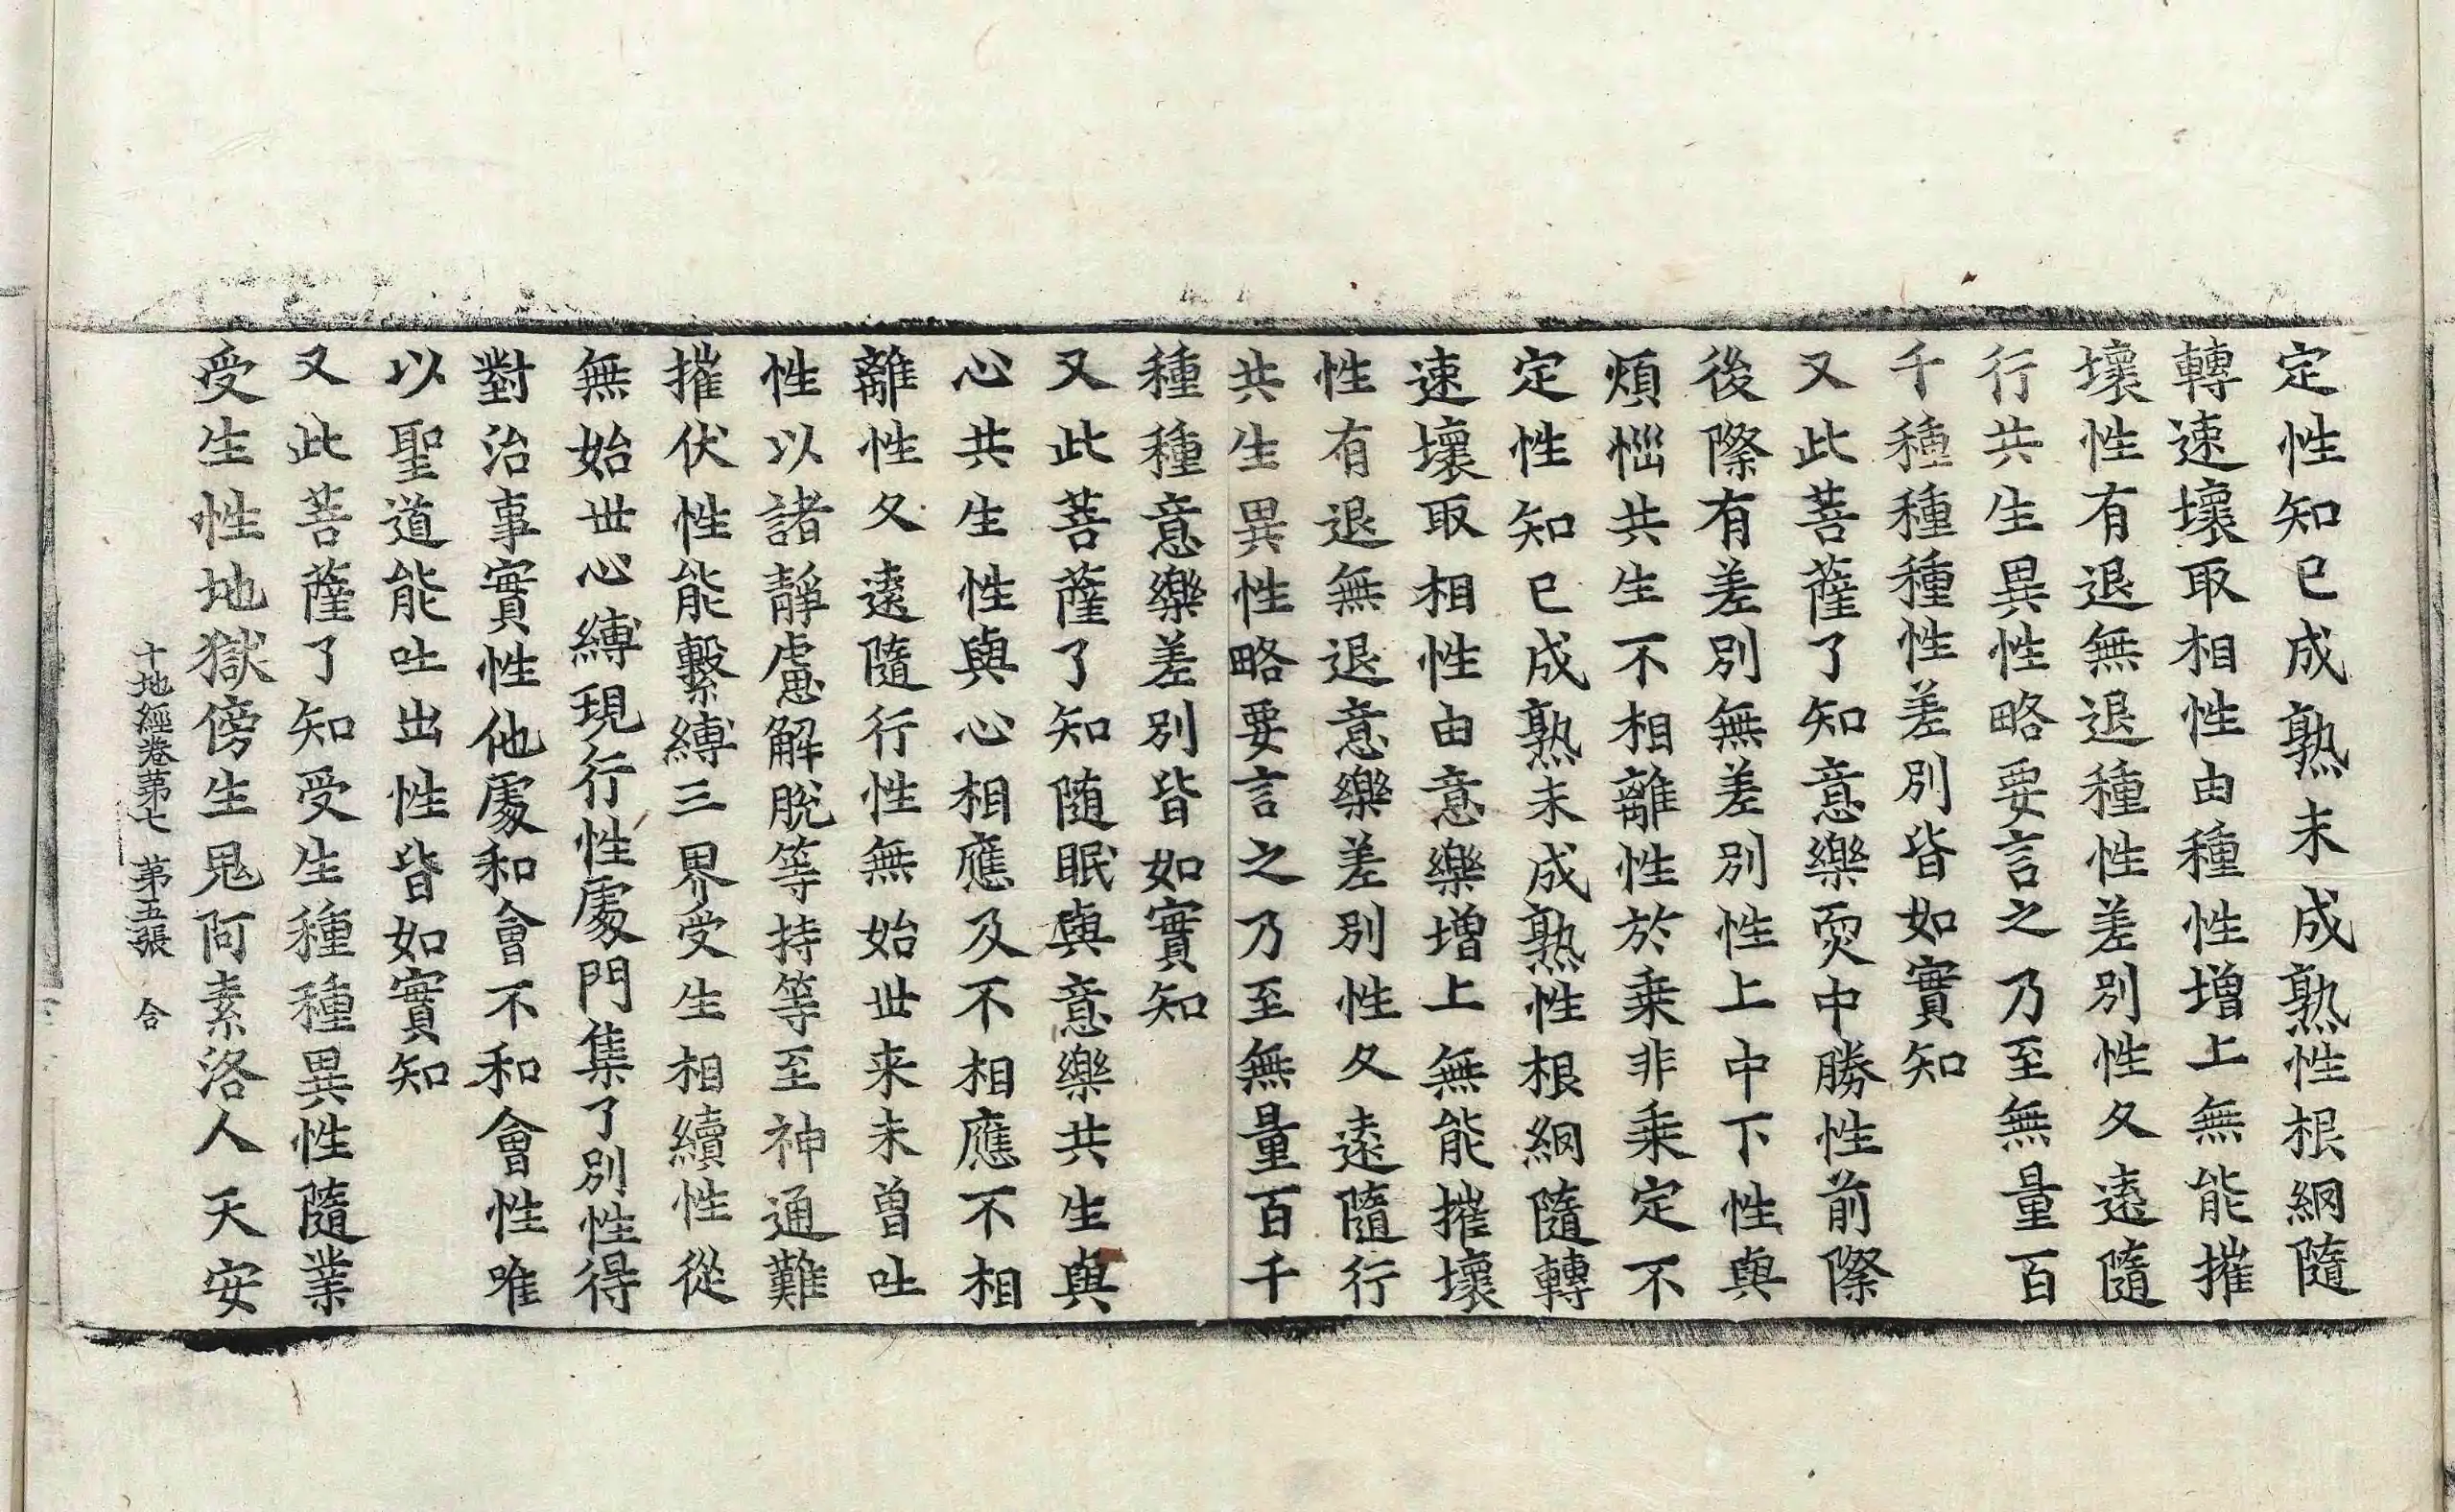 定性知已成熟未成熟性根網隨
轉速壞取相性由種性增上無能摧
壞性有退無退種性差別性久遠隨
行共生異性略要言之乃至無量百
千種種種性差別皆如實知
又此菩薩了知意樂耎中勝性前際
後際有差別無差別性上中下性與
煩惱共生不相離性於乘非乘定不
定性知已成熟未成熟性根網隨轉
速壞取相性由意樂增上無能摧壞
性有退無退意樂差別性久遠隨行
共生異性略要言之乃至無量百千
種種意樂差別皆如實知
又此菩薩了知随眠與意樂共生與
心共生性與心相應及不相應不相
離性久遠隨行性無始世来未曾吐
性以諸靜慮解脫等持等至神通難
摧伏性能繫縛三界受生相續性從
無始世心縛現行性處門集了別性得
對治事實性他處和會不和會性唯
以聖道能吐出性皆如實知
又此菩薩了知受生種種異性隨業
受生性地獄傍生鬼阿素洛人天安
十地經卷第七 第五張 合